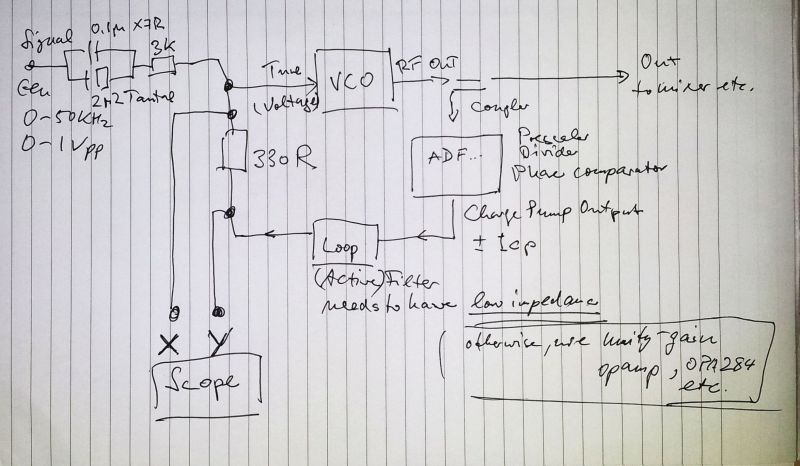 Signal
0.1µ X7R
3K
Gen
2µ2 Tantal
0-50KHz
0-1Vpp
Tune
(Voltage)
VCO
RF OUT
Out
to mixer etc.
Coupler
330R
ADF...
Prescaler
Divider
Phase comparator
Charge Pump Output
± Icp
Loop
(Active) Filter
needs to have low impedance
(otherwise, use unity-gain
opamp, OPA284
etc.
X Y
Scope